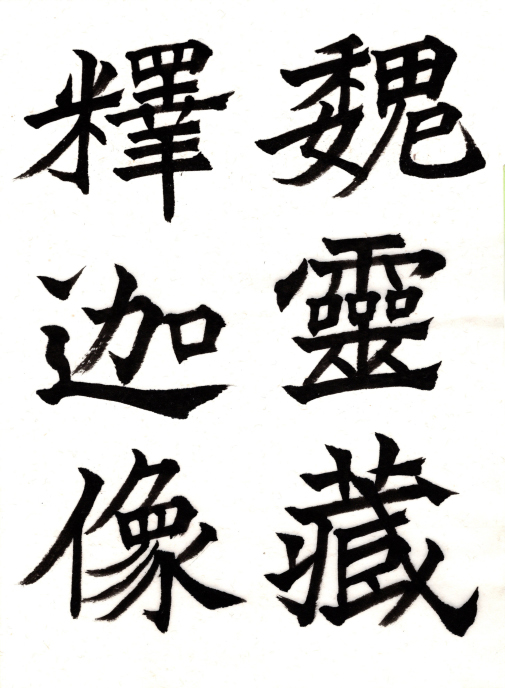 魏靈藏
釋迦像